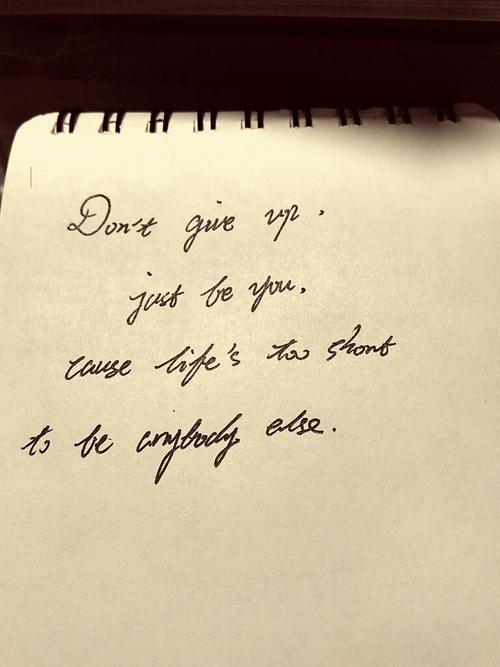 Don't give up.
just be you.
cause life's too short
to be anybody else.